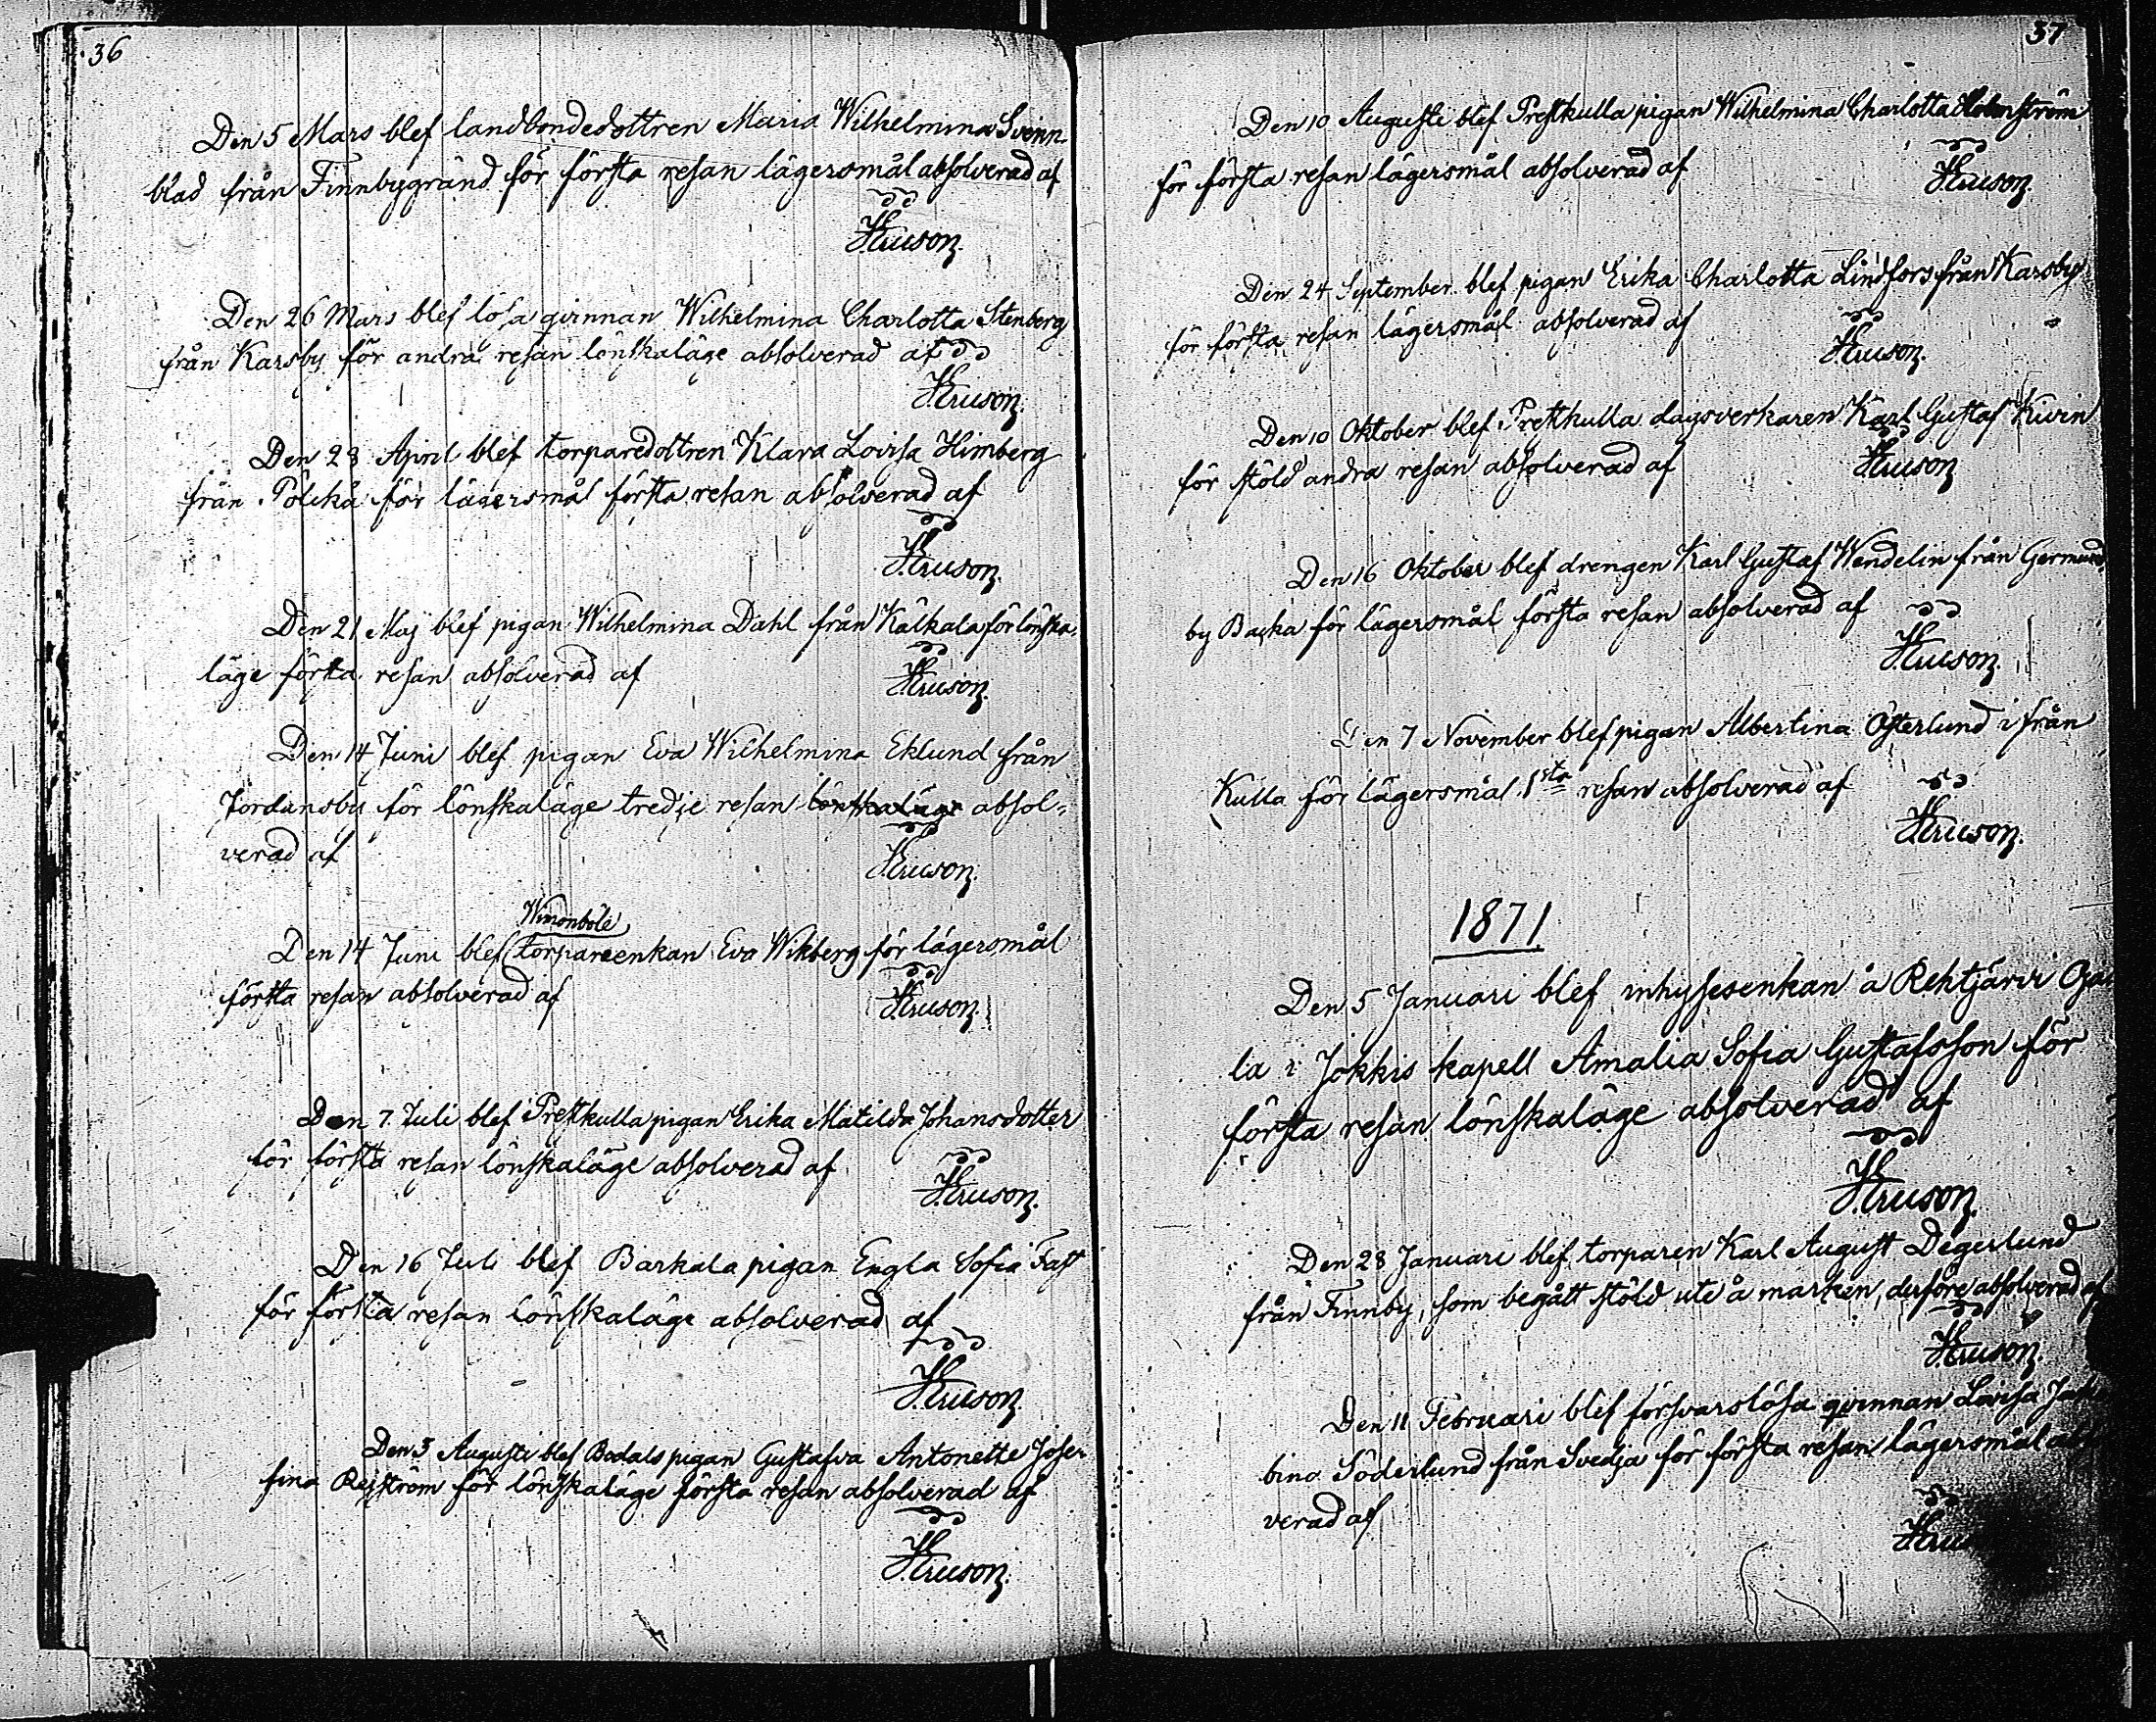 36
Den 5 Mars blef landbondedottren Maria Wilhelmina Svenn-
blad från Finnbygränd för första resan lägersmål absolverad af
Den 26 Mars blef lösa qvinnan Wilhelmina Charlotta Stenberg
från Karsby för andra resan lönskaläge absolverad af
Den 28 April blef torparedottren Klara Lovisa Himberg
från för lägersmål första resan absolverad af
Den 21 Maj blef pigan Wilhelmina Dahl från Kälkala för lönska-
läge första resan absolverad af
Den 14 Juni blef pigan Eva Wilhelmina Eklund från
Jordansby för lönskaläge tredje resan lönskaläge absol-
verad af
Den 14 Juni blef torpareenkan Eva Wikberg för lägersmål
första resan absolverad af
Den 7 Juli blef Prestkulla pigan Erika Matilda Johansdotter
för första resan lönskaläge absolverad af
Den 16 Juli blef Barkala pigan Engla Sofia Fast
för första resan lönskaläge absolverad af
Den 3 Augusti blef pigan Gustafva Antonette Jose-
fina för lönskaläge första resan absolverad af
37
Den 10 Augusti blef Prestkulla pigan Wilhelmina Charlotta Holmström
för första resan lägersmål absolverad af
Den 24 September blef pigan Erika Charlotta Lindfors från Karsby
för första resan lägersmål absolverad af
Den 10 Oktober blef Prestkulla dagsverkaren Karl Gustaf Kivin
för stöld andra resan absolverad af
Den 16 Oktober blef drengen Karl Gustaf Wendelin från Germund-
by Backa för lägersmål första resan absolverad af
Den 7 November blef pigan Albertina Österlund ifrån
Kulla för lägersmål 1sta resan absolverad af
1871
Den 5 Januari blef inhysesenkan å Rehtjärvi Oja
la i Jokkis kapell Amalia Sofia Gustafsson för
första resan lönskaläge absolverad af
Den 28 Januari blef torparen Karl August Degerlund
från Finnby, som begått stöld ute å marken, derföre absolverad af
Den 11 Februari blef försvarslösa qvinnan Lovisa
bina Söderlund från Svedja för första resan lägersmål
verad af